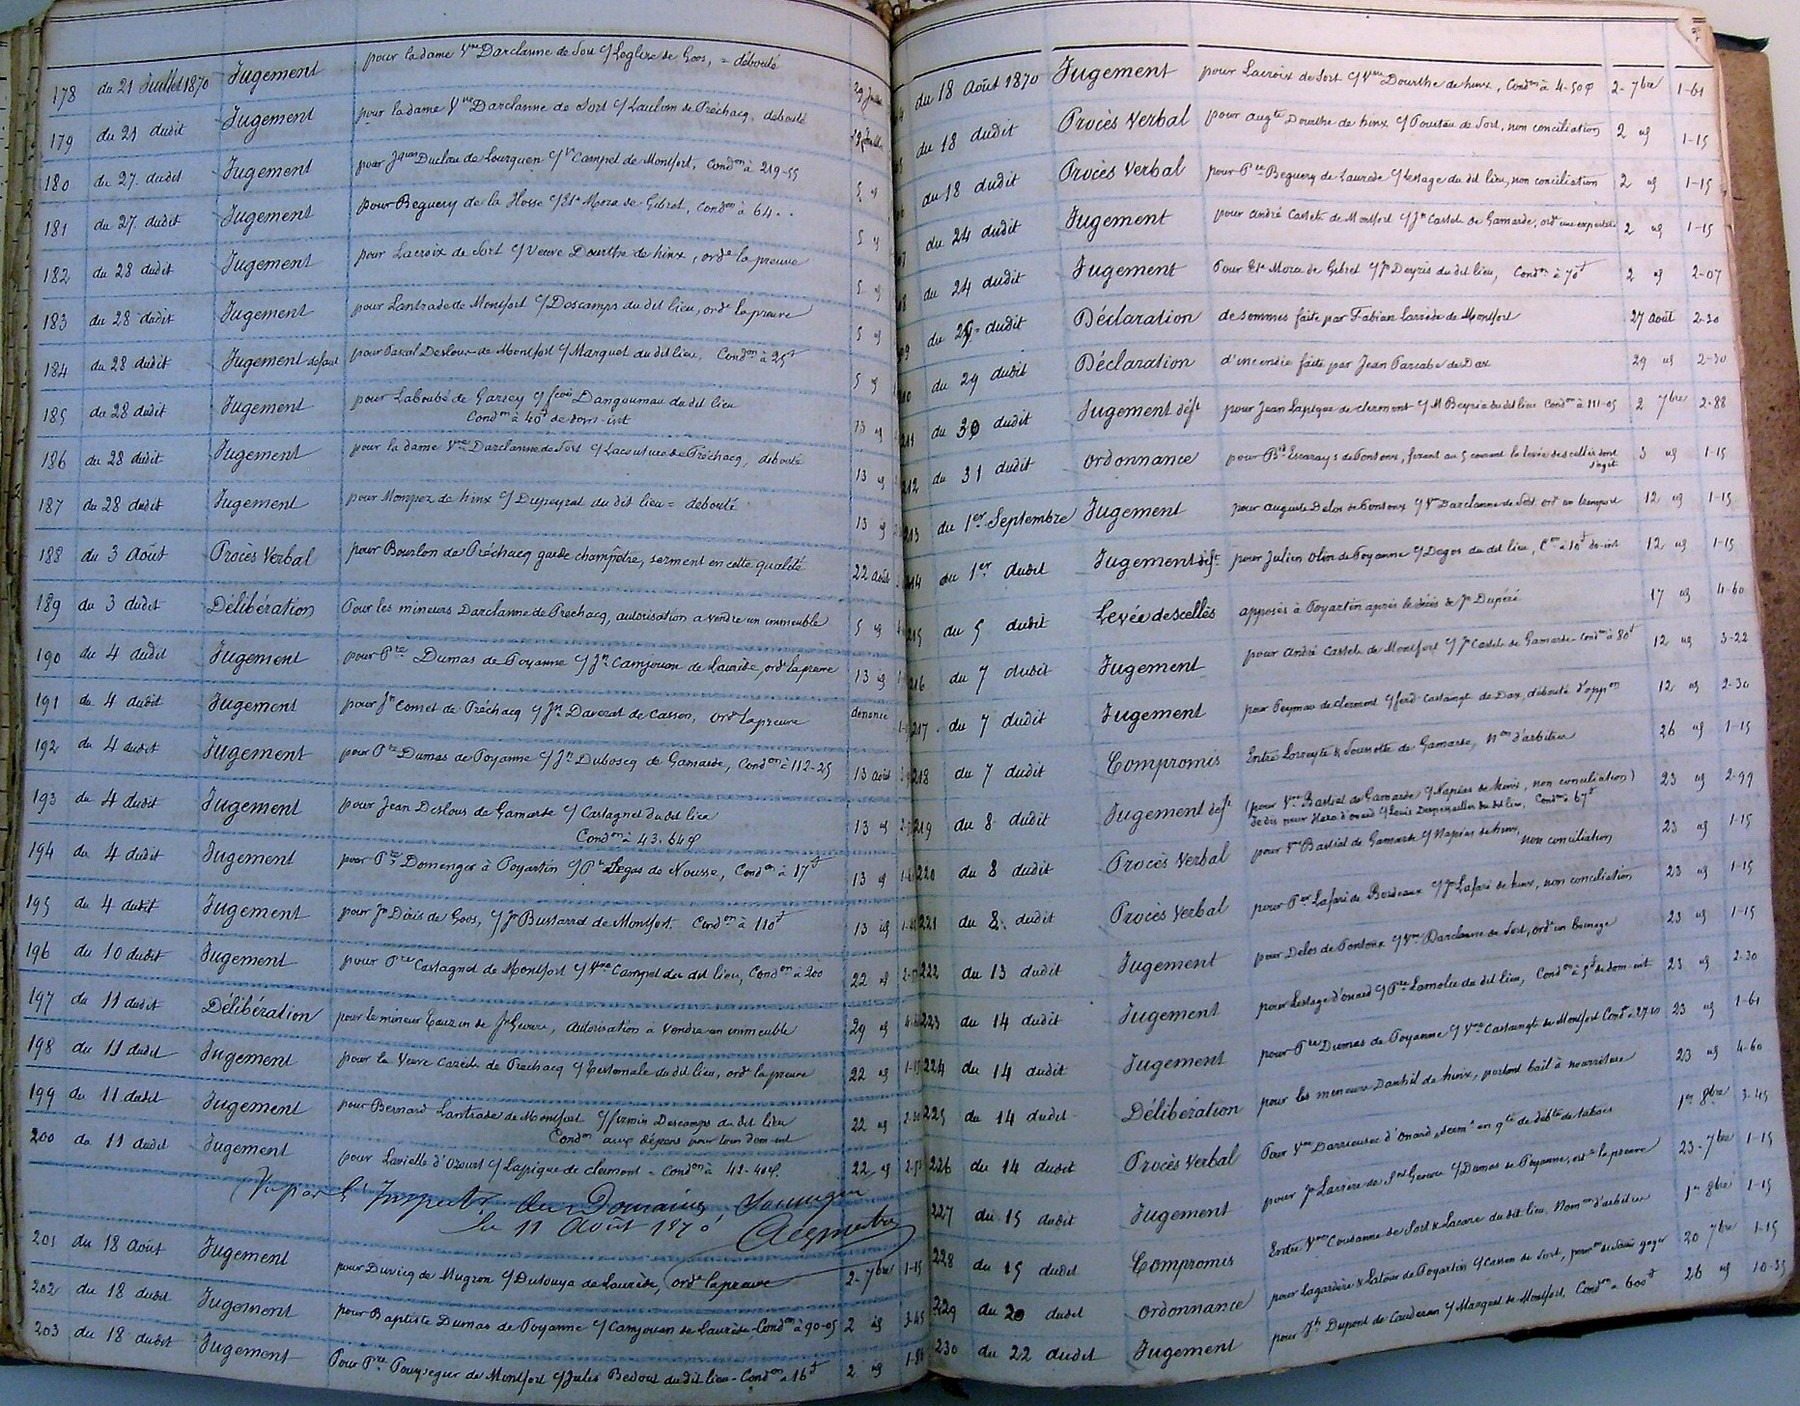 178 du 21 Juillet 1870 Jugement pour la dame Vve Darclanne de Sort c/ Loglize de Goos, = débouté 29 Juillet
179 du 21 dudit Jugement pour la dame Vve Darclanne de Sort c/ Laulom de Préchacq, débouté
180 du 27 dudit Jugement pour Duclau de Lourquen c/ Campet de Montfort, Condon à 219-55 5 "
181 du 27 dudit Jugement pour Beguery de la Hosse c/ Et Mora de Gibret, Condon à 64 . . 5 "
182 du 28 dudit Jugement pour Lacroix de Sort c/ Veuve Dourthe de hinx, orde la preuve 5 "
183 du 28 dudit Jugement pour Lantrade de Montfort c/ Descamps du dit lieu, ordt la preuve 5 "
184 du 28 dudit Jugement defaut pour Pascal Deslous de Montfort c/ Marquet du dit lieu, Condon à 25f 5 "
185 du 28 dudit Jugement pour Laboubé de Garrey c/ fcois Dangoumau du dit lieu
Condon à 40f de dom-int 13 "
186 du 28 dudit Jugement pour la dame Vve Darclanne de Sort c/ Lacouture de Préchacq, débouté 13 "
187 du 28 dudit Jugement pour Mompez de hinx c/ Dupeyrat du dit lieu = débouté 13 "
188 du 3 Août Procès Verbal pour Bourlon de Préchacq garde champêtre, serment en cette qualité 22 août
189 du 3 dudit Délibération Pour les mineurs Darclanne de Prechacq, autorisation a vendre un immeuble 5 "
190 du 4 dudit Jugement pour Pre Dumas de Poyanne c/ Jn Camjouan de Laurède, ordt la preuve 13 "
191 du 4 dudit Jugement pour Jn Comet de Préchacq c/ Jn Daverat de Cassen, ordt la preuve dénonce
192 du 4 dudit Jugement pour Pre Dumas de Poyanne c/ Jn Duboscq de Gamarde, Condon à 112-25 13 août
193 du 4 dudit Jugement pour Jean Deslous de Gamarde c/ Castagnet du dit lieu
Condon à 43. 64c 13 "
194 du 4 dudit Jugement pour Pre Domenger à Poyartin c/ Degos de Nousse, Condon à 17f 13 "
195 du 4 dudit Jugement pour Jn Diris de Goos, c/ Jn Bustarret de Montfort. Condon à 110f 13 "
196 du 10 dudit Jugement pour Pre Castagnet de Montfort c/ Vve Campet du dit lieu, Condon à 200 22 "
197 du 11 dudit Délibération pour le mineur Cauzin de St Geours, Autorisation à Vendre un immeuble 29 "
198 du 11 dudit Jugement pour la Veuve Cazeils de Prechacq c/ du dit lieu, ordt la preuve 22 " 1-15
199 du 11 dudit Jugement pour Bernard Lantrade de Montfort c/ firmin Descamps du dit lieu
Condon aux dépens pour tous dom-int 22 "
200 du 11 dudit Jugement pour Lavielle d'Ozourt c/ Lapique de Clermont = Condon à 42-40c. 22 "
Vu par l'Inspectr des Domaines
le 11 Août 1870
201 du 18 Août Jugement pour Duvicq de Mugron c/ Dutouya de Laurède, ordt la preuve 2-7bre 1-15
202 du 18 dudit Jugement pour Baptiste Dumas de Poyanne c/ Camjouan de Laurède - Condon à 90-05 2 " 3-45
203 du 18 dudit Jugement Pour Pre Pouységur de Montfort c/ Jules Bedout du dit lieu - Condon à 16f 2 "
du 18 Août 1870 Jugement pour Lacroix de Sort c/ Vve Dourthe de hinx, Condon à 4-50c 2-7bre 1-61
du 18 dudit Procès Verbal pour Augte Dourthe de hinx c/ Pouteau de Sort, non conciliation 2 " 1-15
du 18 dudit Procès Verbal pour Pre Beguery de Laurede c/ Lestage du dit lieu, non conciliation 2 " 1-15
du 24 dudit Jugement pour André Castets de Montfort c/ Jn Castets de Gamarde, ordt une expertise 2 " 1-15
du 24 dudit Jugement Pour Et Mora de Gibret c/ Jn Deyris du dit lieu, Condon à 70f 2 " 2-07
du dudit Déclaration de sommes faite par Fabian Larrède de Montfort 27 août 2-30
210 du 29 dudit Déclaration d'incendie faite par Jean Parcabe de Dax 29 " 2-30
211 du 30 dudit Jugement deft pour Jean Lapique de clermont c/ M Beyrie du dit lieu Condon à 111-05 2 7bre 2-88
212 du 31 dudit Ordonnance pour Escarays de Pontonx, fixant au 5 courant la levée des scellés dont
s'agit 3 " 1-15
213 du 1er Septembre Jugement pour Auguste Delos de Pontonx c/ Vve Darclanne de Sort, ordt un transport 12 " 1-15
214 du 1er dudit Jugement deft pour Julien Olin de Poyanne c/ Degos du dit lieu, Con à 10f do-int 12 " 1-15
215 du 5 dudit Levée de scellés apposés à Poyartin après le décès de Jn Dupéré 17 " 4-60
216 du 7 dudit Jugement pour André Castets de Montfort c/ Jn Castets de Gamarde Condon à 80f 12 " 3-22
217 du 7 dudit Jugement pour Peyman de Clermont c/ ferd Castaingt de Dax, débouté d'oppon 12 " 2-30
218 du 7 dudit Compromis Entre & de Gamarde, Non d'arbitre 26 " 1-15
219 du 8 dudit Jugement deft (pour Vve Bastiat de Gamarde c/ Napias de hinx, non conciliation)
Je dis pour d'onard c/ Louis du dit lieu, Condon à 67f 23 " 2-99
220 du 8 dudit Procès Verbal pour Vve Bastiat de Gamarde c/ Napias de hinx, non conciliation 23 " 1-15
221 du 8 dudit Procès Verbal pour Pre Lafari de Bordeaux c/ Jn Lafari de hinx, non conciliation 23 " 1-15
222 du 13 dudit Jugement pour Delos de Pontonx c/ Vve Darclanne de Sort, ordt un bornage 23 " 1-15
223 du 14 dudit Jugement pour Lestage d'onard c/ Pre Lamolie du dit lieu, Condon à 5f de dom-int 23 " 2-30
224 du 14 dudit Jugement pour Pre Dumas de Poyanne c/ Vve Castaingt de Montfort Condon à 23 " 1-61
225 du 14 dudit Délibération pour les mineurs Danhil de hinx, portant bail à nourriture 23 " 4-60
226 du 14 dudit Procès Verbal Pour Vve Darrieusec d'Onard, serm. en qté de débte de tabacs 1er 8bre 3-45
227 du 15 dudit Jugement pour Jn Larrère de St Geours c/ Dumas de Poyanne, ordt la preuve 23-7bre 1-15
228 du 15 dudit Compromis Entre Vve Coudanne de Sort & Lacave du dit lieu, Nomon d'arbitre 1er 8bre 1-15
229 du 20 dudit Ordonnance pour Lagardère & Latour de Poyartin c/ Cassen de Sort, permon de saisie gager 20 7bre 1-15
230 du 22 dudit Jugement pour Jh Dupont de Cauderan c/ Marquet de Montfort, Condon à 600f 26 " 10-35